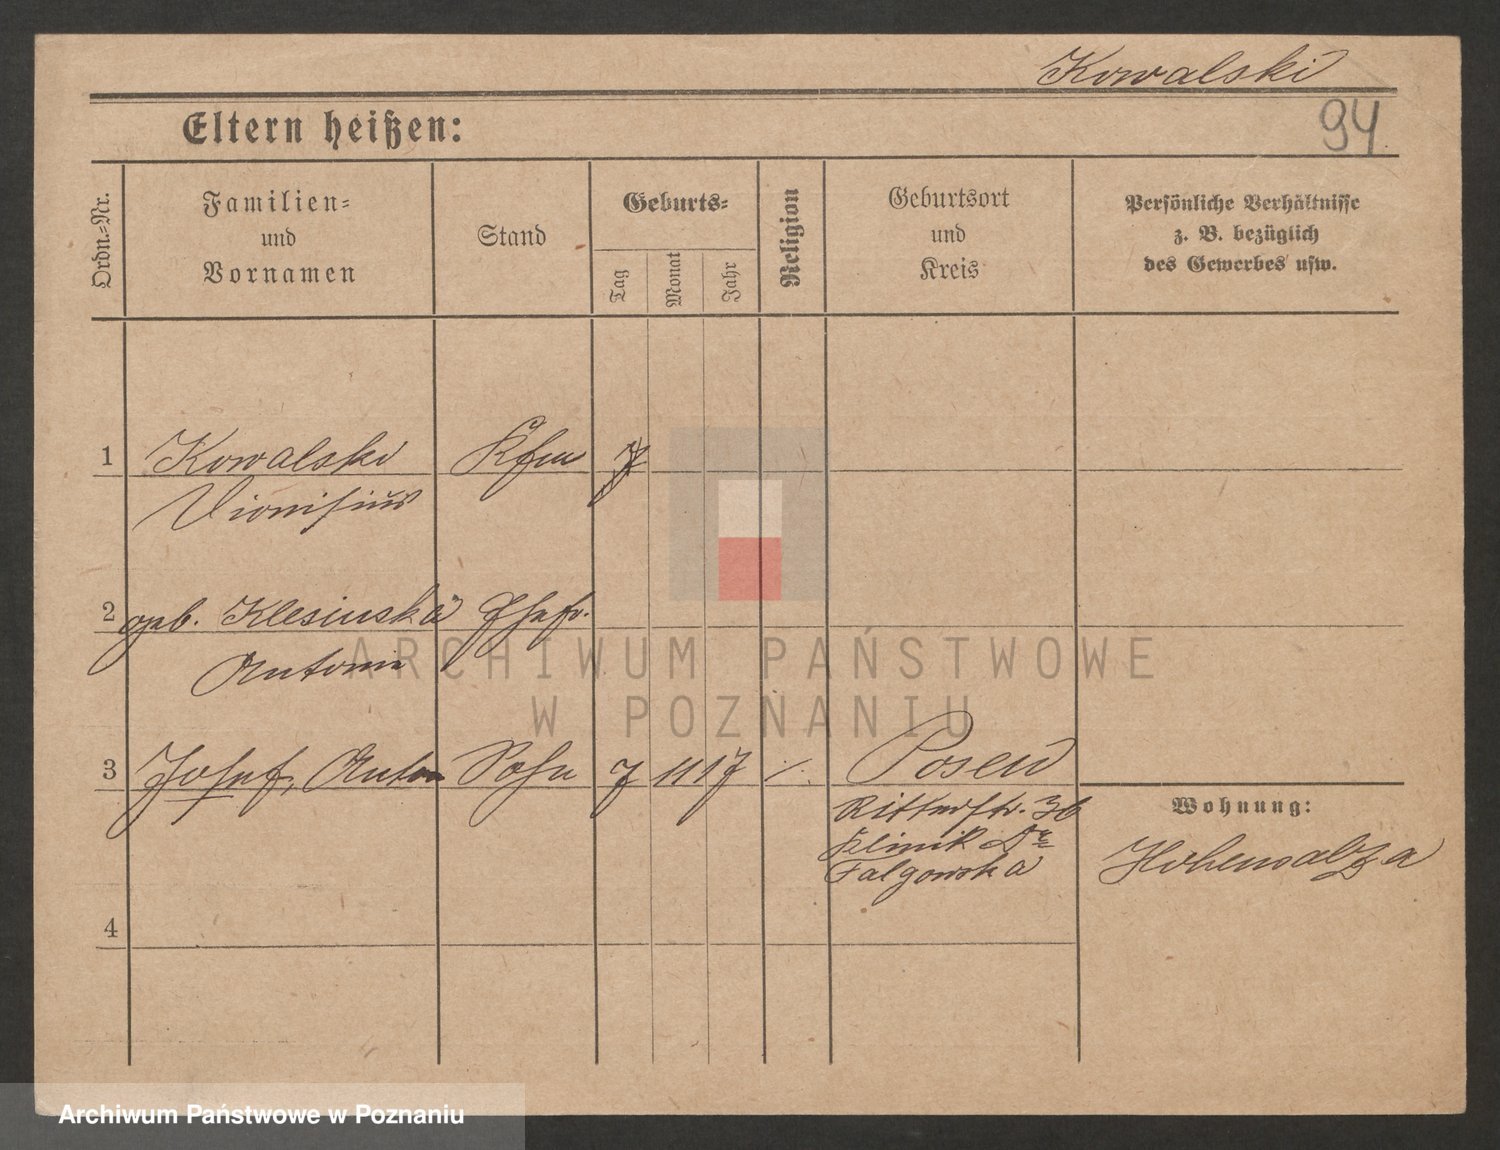 Kowalski
94
Eltern heißen:
Ordn.-Nr.
Familien-
und
Vornamen
Stand
Geburts-
Tag
Monat
Jahr
Religion
Geburtsort
und
Kreis
Persönliche Verhältnisse
z. B. bezüglich
des Gewerbes usw.
1 Kowalski Kfm
Dionisius
2 geb. Klesinska Ehefr.
Antonie
3 Josef, Anton Sohn 7 11 17 /. Posen
Ritterstr. 36
Klinik Dr
Falgowska
Wohnung:
Hohensalza
4
ARCHIWUM PAŃSTWOWE
W POZNANIU
Archiwum Państwowe w Poznaniu